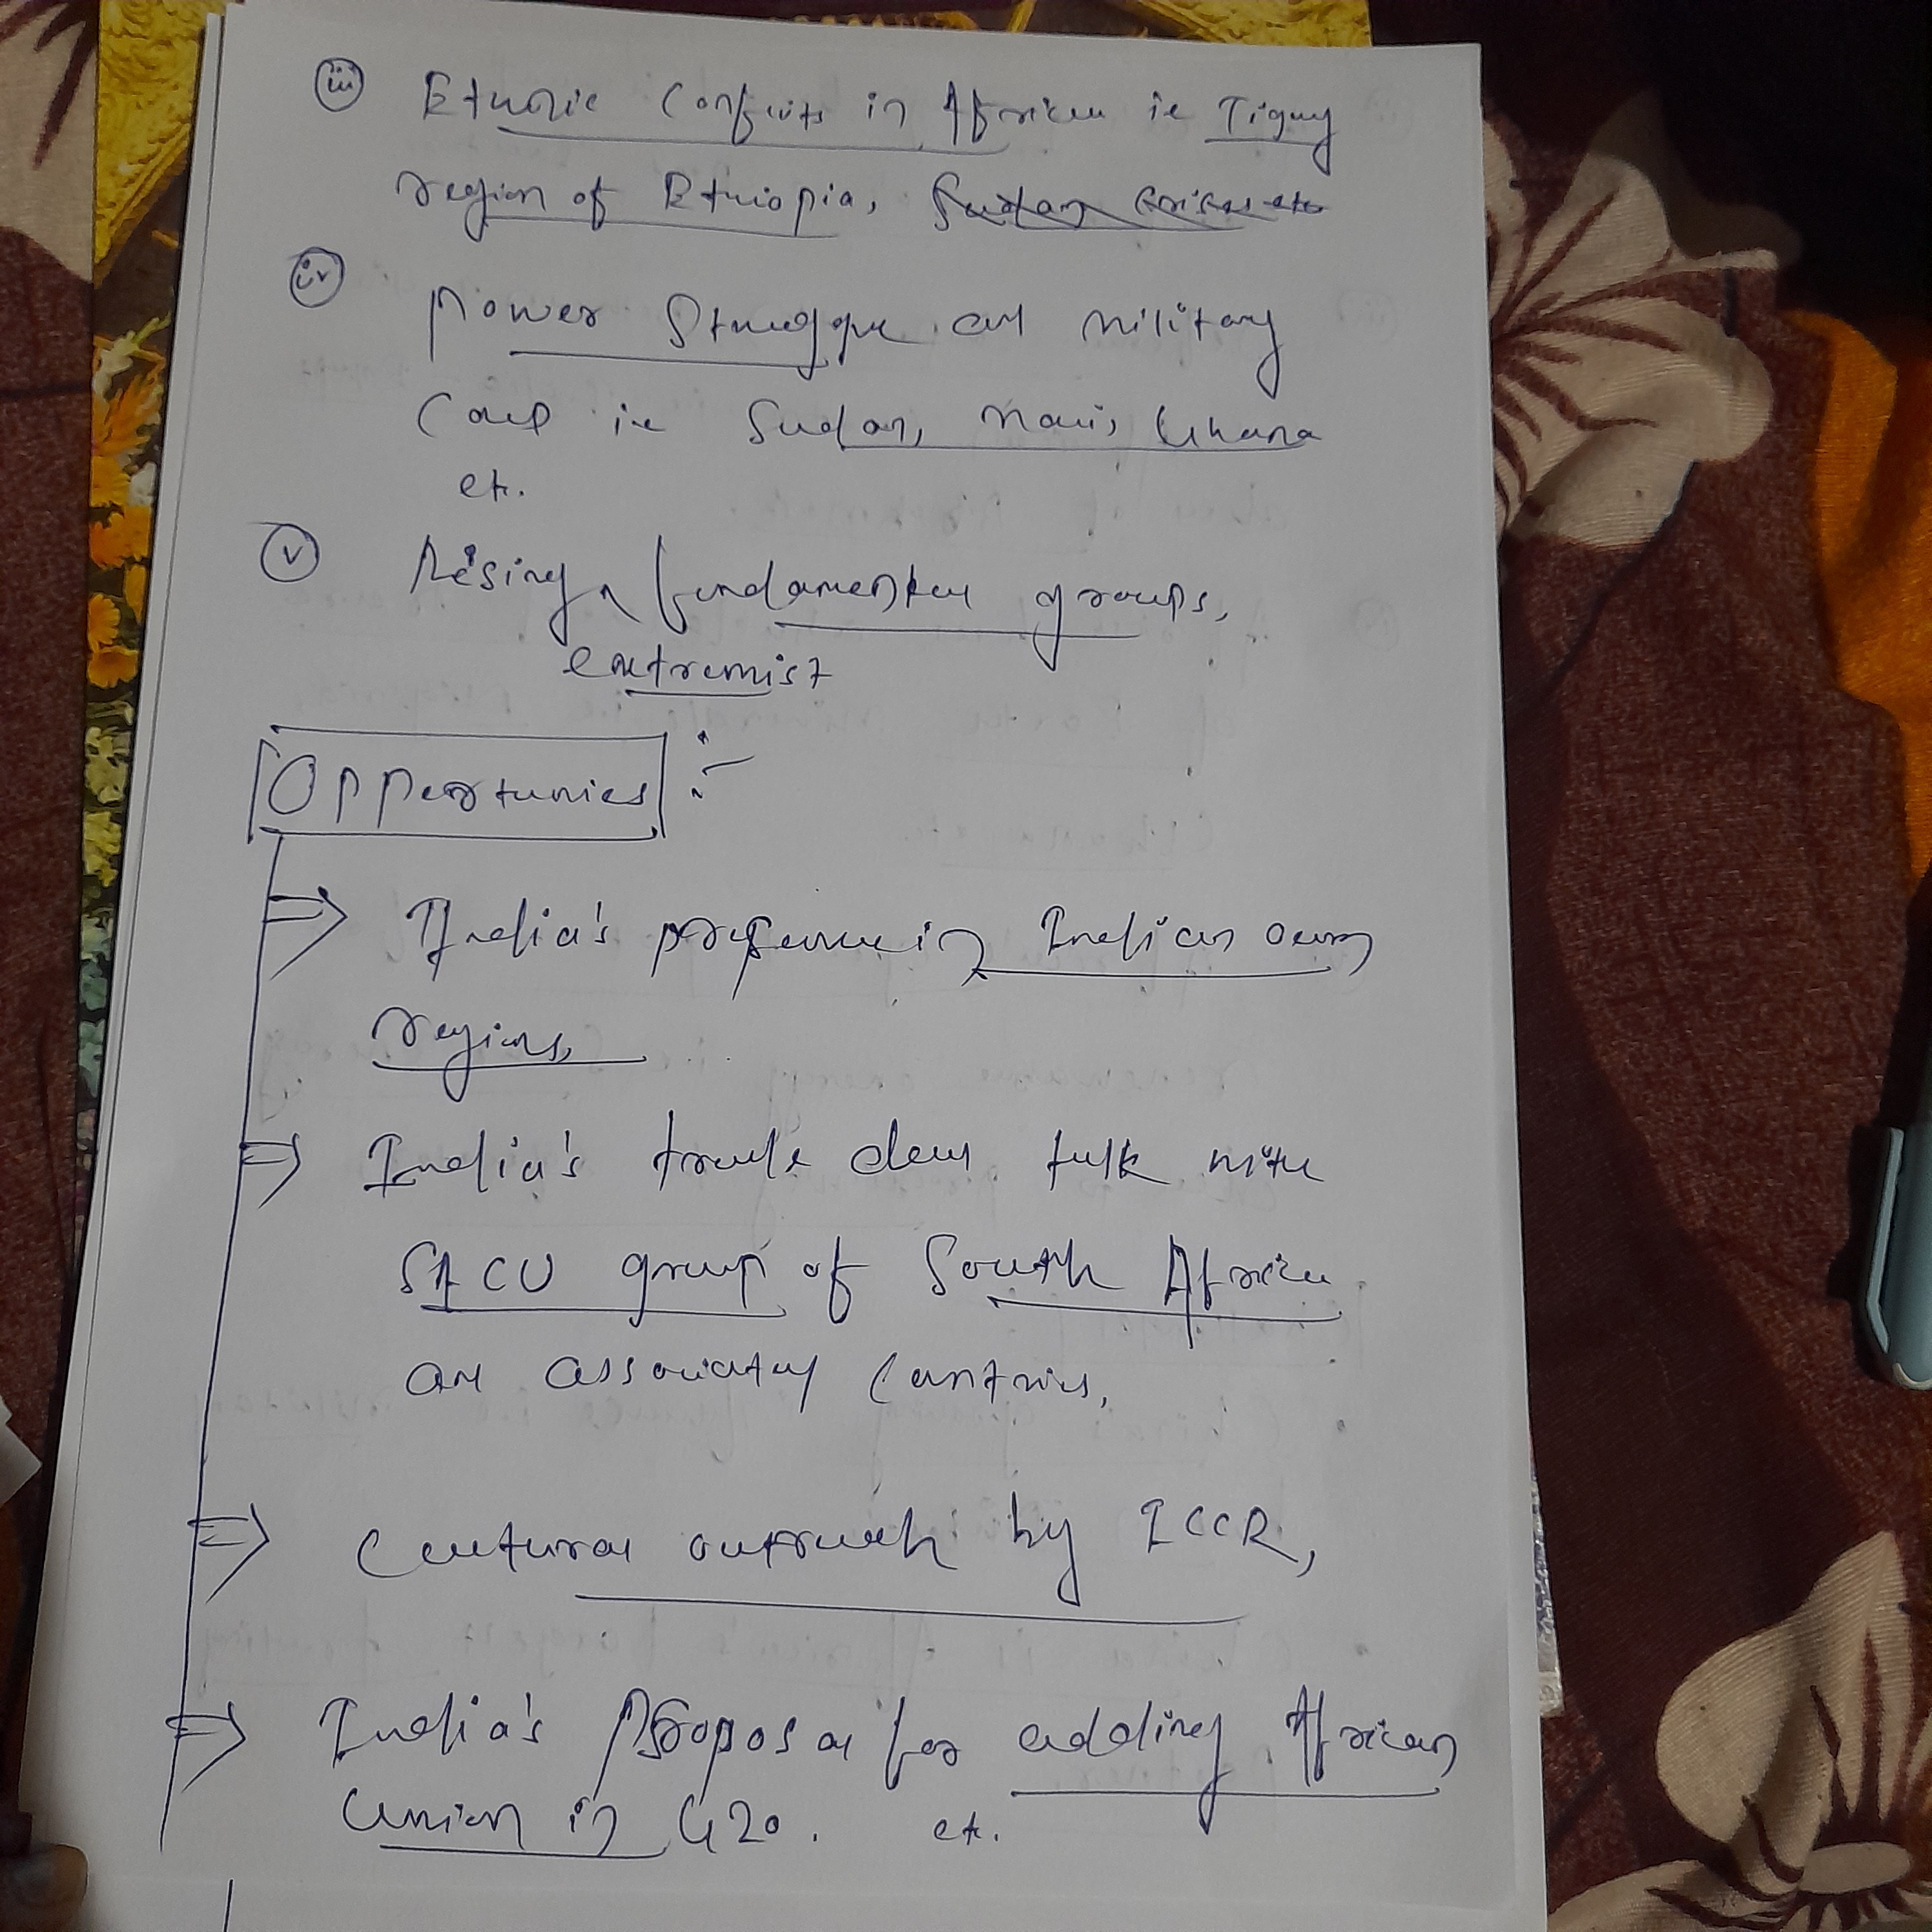 (iii) Ethnic Conflicts in Africa ie Tigray
region of Ethiopia, Sudan Crises etc
(iv) Power Struggle and military
Coup ie Sudan, Mali, Ghana
etc.
(v) Rising fundamental groups,
extremist
Opportunies :-
⇒ India's preference in Indian ocean
regions,
⇒ India's trade deal talk with
SACU group of South Africa
and associated Contries,
⇒ Cultural outreach by ICCR,
⇒ India's Proposal for adding African
Union in G20. etc.